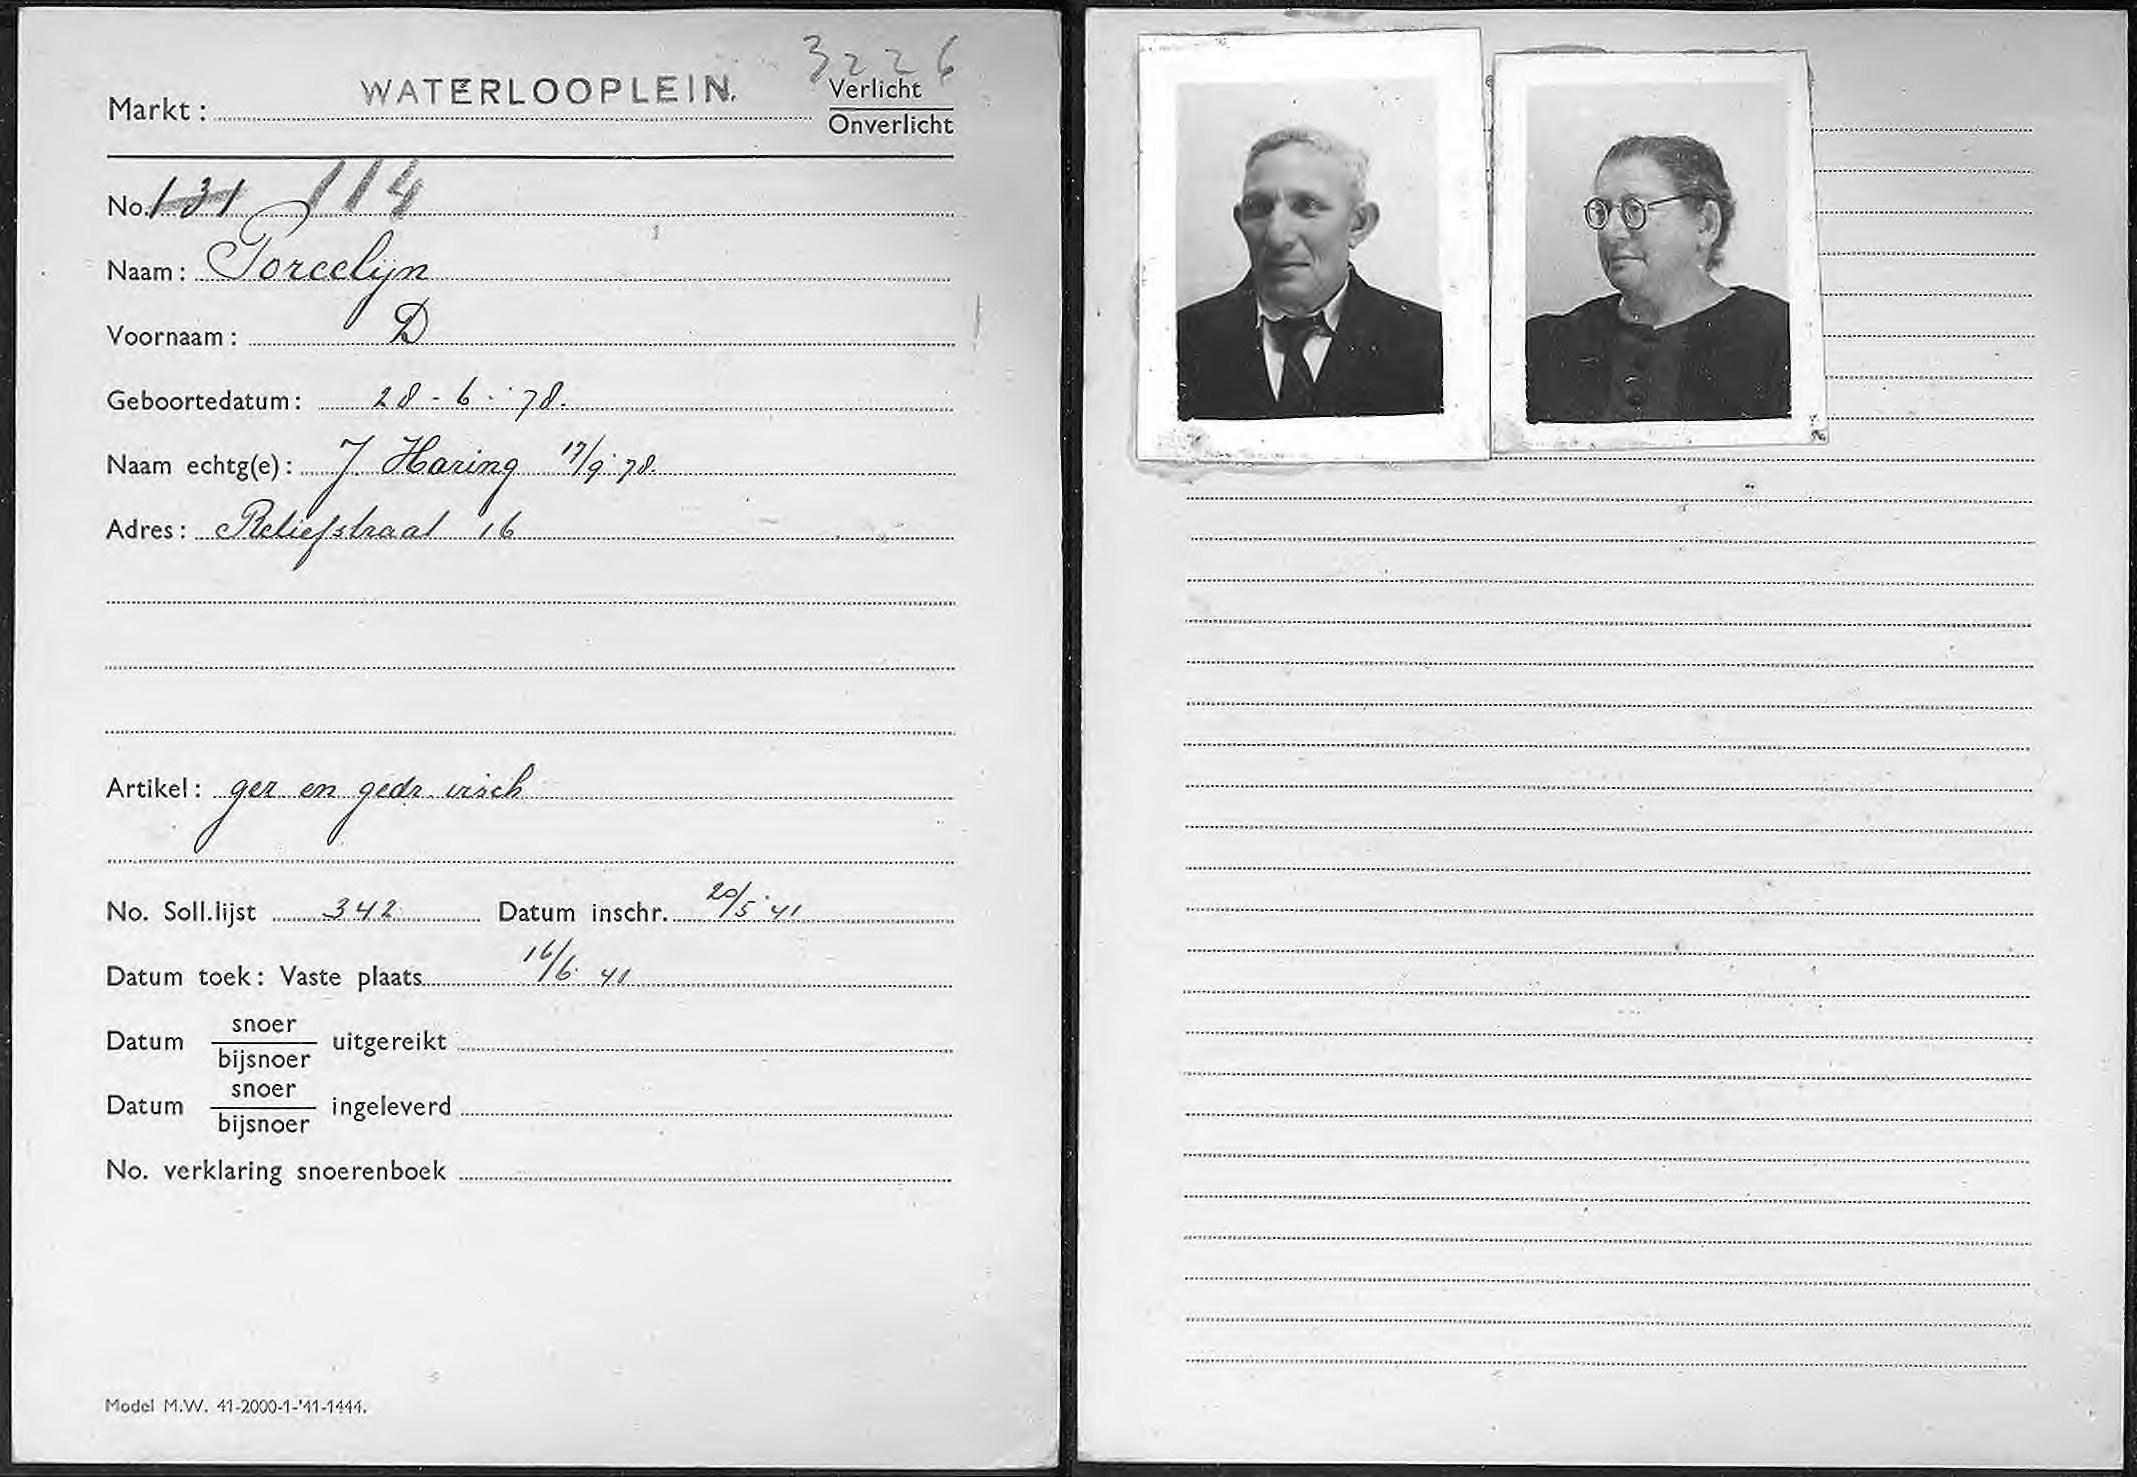 3226
Markt: WATERLOOPLEIN. Verlicht
Onverlicht
No. 131 114
Naam: Porcelijn
Voornaam: D
Geboortedatum: 28-6-78.
Naam echtg(e): J. Haring 17/9 78.
Adres: Reliefstraat 16
Artikel: ger en gedr. visch
No. Soll.lijst 342 Datum inschr. 20/5 '41
Datum toek: Vaste plaats 16/6. 41
Datum snoer / bijsnoer uitgereikt
Datum snoer / bijsnoer ingeleverd
No. verklaring snoerenboek
Model M.W. 41-2000-1-'41-1444.